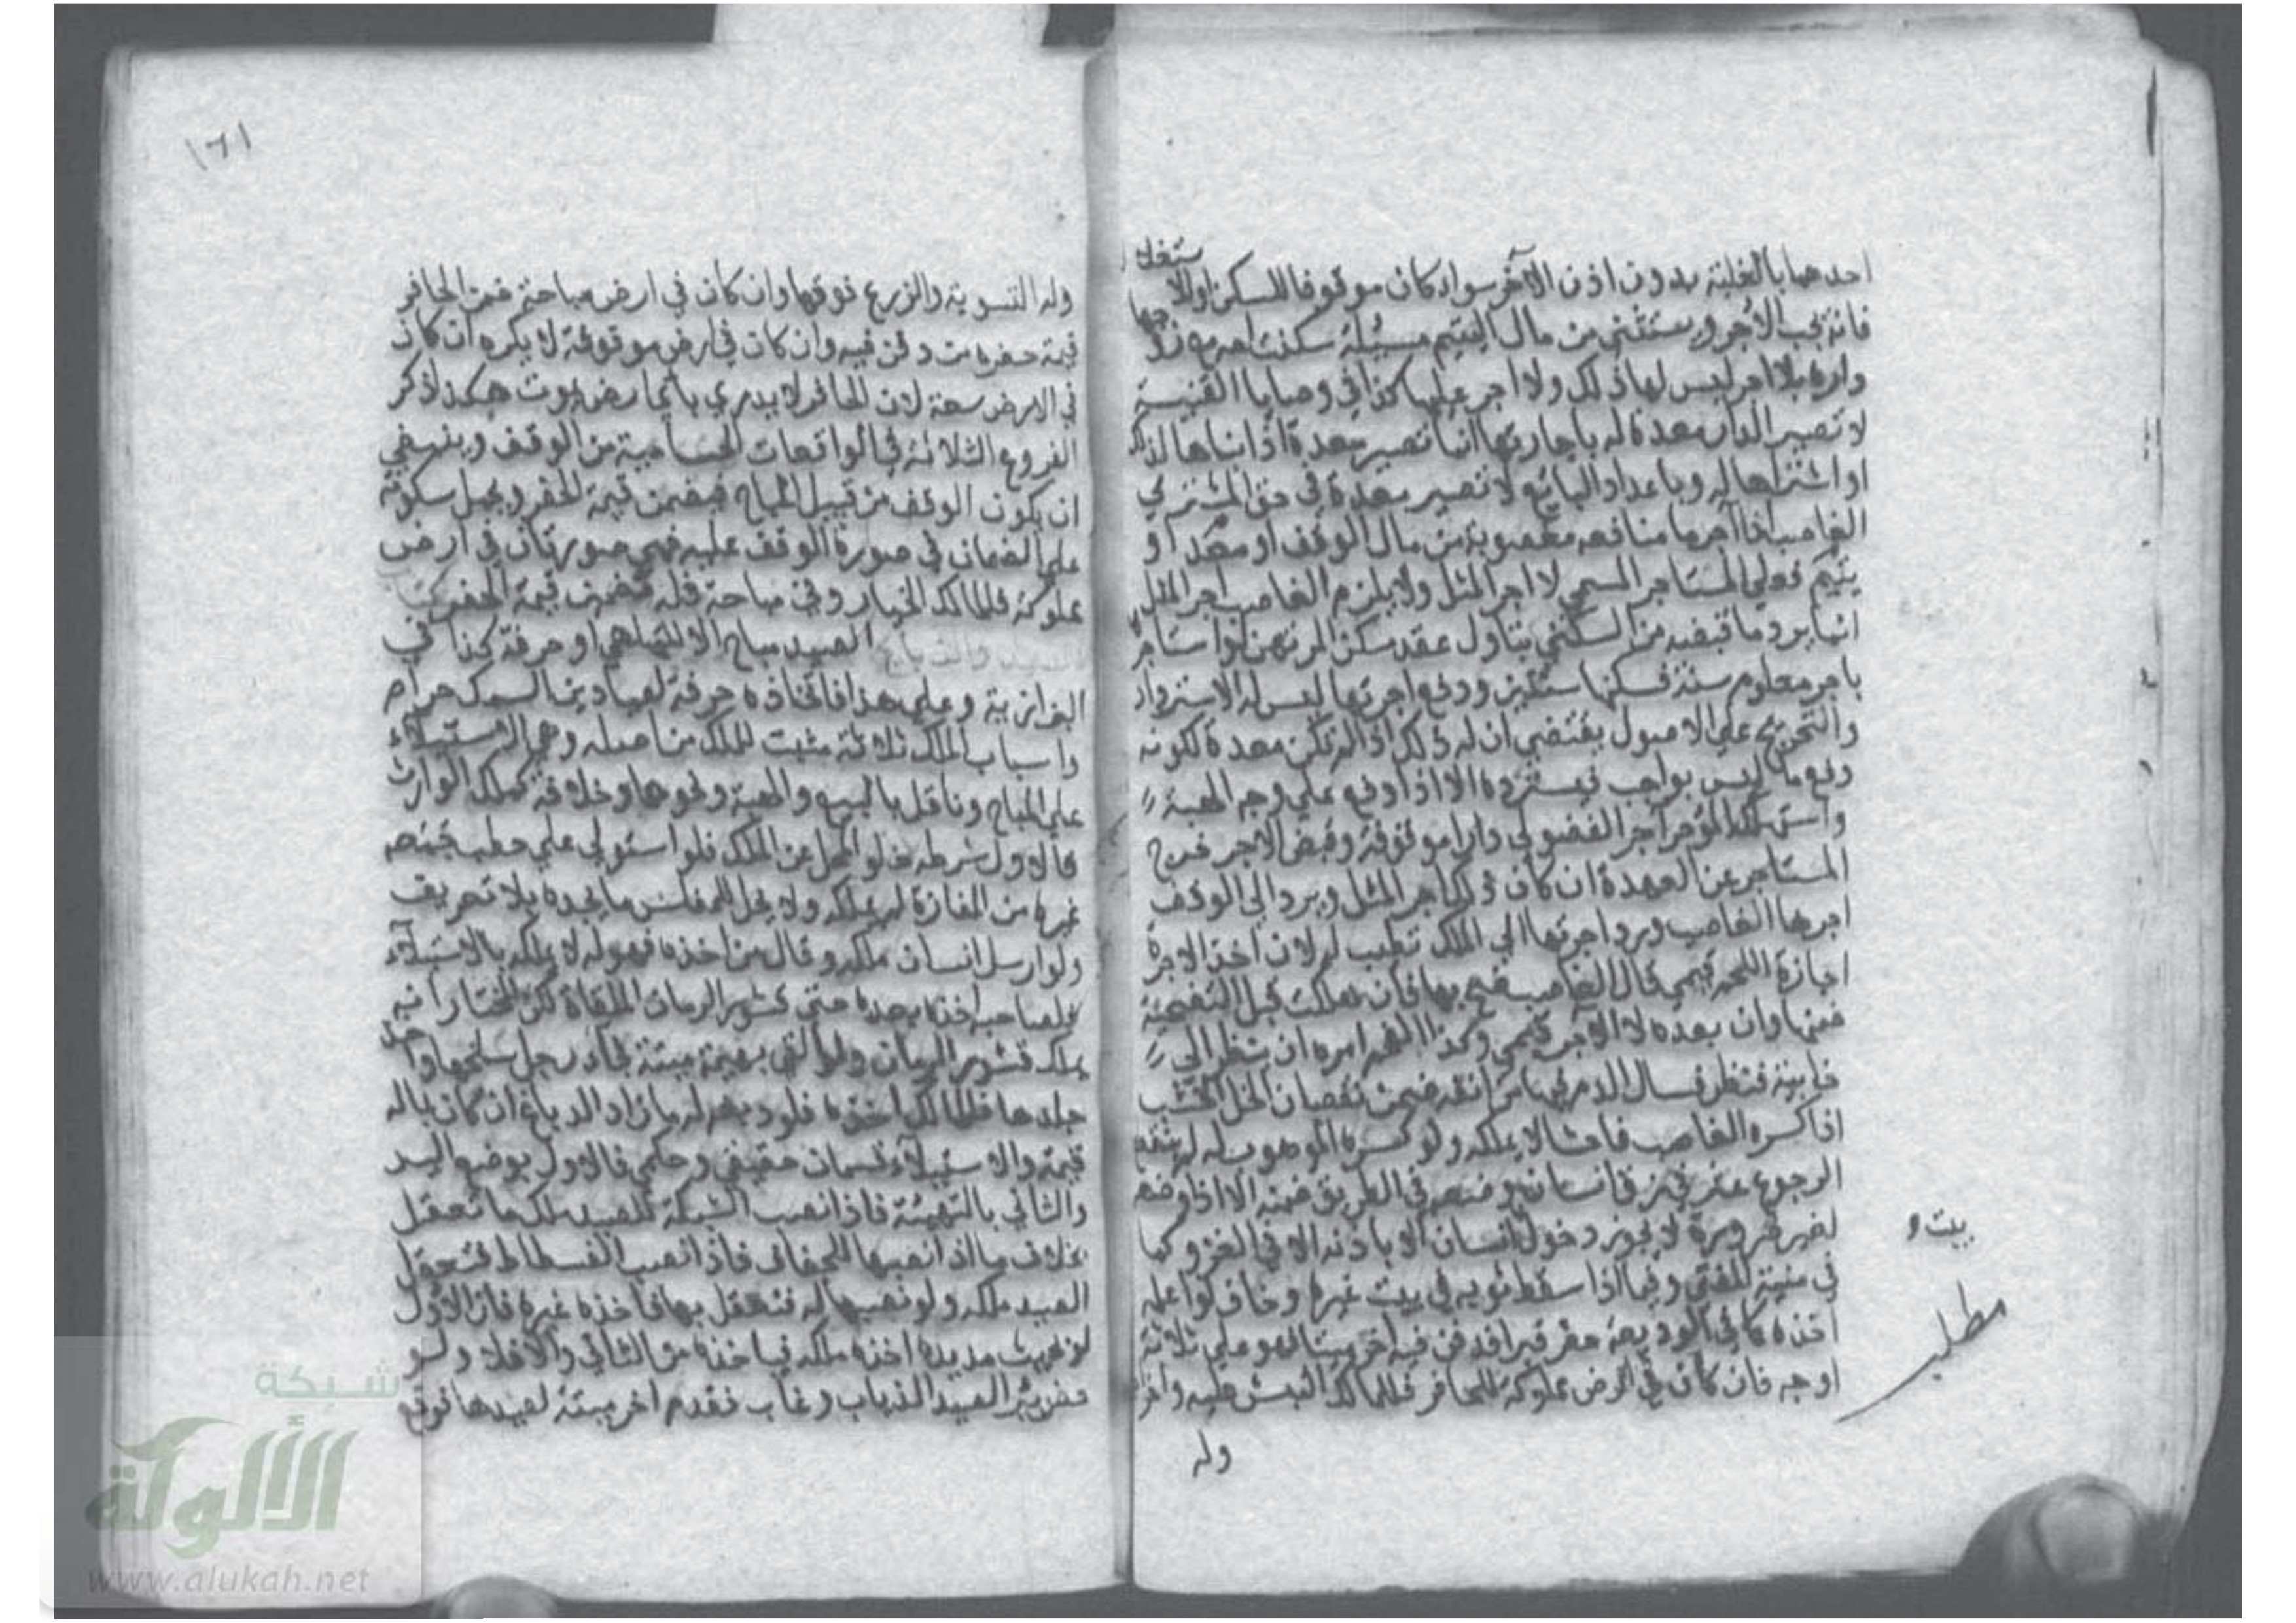 احدهما بالغلبة بدون اذن الآخر سواء كان موقوفا للسكن او للاستغلال
فانه يجب الأجر ويستثنى من مال اليتيم مسئلة سكنت امه مع زوجها
داره بلا اجر ليس لها ذلك ولا اجر عليها كذا في وصايا القنية
لا تصير الدار معدة له باجارتها انما تصير معدة اذا بناها لذلك
او اشتراها له وباعداد البائع لا تصير معدة في حق المشتري
الغاصب اذا آجر ما منافعه مضمونة من مال الوقف او معدا او
يتيم فعلي المستاجر المسمى لا اجر المثل ولا يلزم الغاصب اجر المثل
انما يرد ما قبضه من السكنى بتاول عقد سكن المرتهن لو استاجر
باجر معلوم سنة فسكنها سنتين ودفع اجرتها ليس له الاسترداد
والتخريج علي الاصول يقتضي ان له ذلك اذا لم تكن معدة لكونه
دفع ما ليس بواجب فيسترده الا اذا دفع علي وجه الهبة
واستهلكه المؤجر آجر الفضولي دارا موقوفة وقبض الاجر خرج
المستاجر عن العهدة ان كان ذلك اجر المثل ويرد الي الوقف
اجرها الغاصب ورد اجرتها الي المالك تطيب له لان اخذ الاجرة
اجازة اللحم قيمي قال الغاصب ضح بها فان هلكت قبل التضحية
ضمنها وان بعده لا الآجر قيمي وكذا الفحم امره ان ينظر الي
خابية فنظر فسال الدم فيها من انفه ضمن نقصان الخل الخشب
اذا كسره الغاصب فاحشا لا يملكه ولو كسره الموهوب له لم ينقطع
الرجوع عثر في زق انسان وضعه في الطريق ضمنه الا اذا وضعه
لغير ضرورة لا يجوز دخول انسان الا باذنه الا في الغزو كما
في منية المفتي وفيما اذا سقط ثوبه في بيت غيره وخاف لو اعلمه
اخذه كما في الوديعة حفر قبرا فدفن فيه اخر ميتا فهو علي ثلاثة
اوجه فان كان في ارض مملوكة للحافر فللمالك النبش عليه واخراجه
وله
بيت
مطلب
١٦١
وله التسوية والزرع فوقها وان كان في ارض مباحة ضمن الحافر
قيمة حفره من دفن فيه وان كان في ارض موقوفة لا يكره ان كان
في الارض سعة لان الحافر لا يدري باي ارض يموت هكذا ذكر
الفروع الثلاثة في الواقعات الحسامية من الوقف وينبغي
ان يكون الوقف من قبيل المباح فيضمن قيمة الحفر ويحمل سكوته
علي الضمان في صورة الوقف عليه فهي صورتان في ارض
مملوكة فللمالك الخيار وفي مباحة فله تضمين قيمة الحفر كتاب
الصيد والذبايح الصيد مباح الا للتلهي او حرفة كذا في
البزازية وعلي هذا فاتخاذه حرفة لصيادين السمك حرام
واسباب الملك ثلاثة مثبت للملك من اصله وهي الاستيلاء
علي المباح وناقل بالبيع والهبة ونحوهما وخلافة كملك الوارث
فالاول شرطه خلو المحل عن الملك فلو استولي علي حطب جمعه
غيره من المفازة لم يملكه ولا يحل للمقلش ما يجده بلا تعريف
ولو ارسل انسان ملكه وقال من اخذه فهو له لا يملكه بالاستيلاء
فلصاحبه اخذه بعده حتي قشور الرمان الملقاة لكن المختار انه
يملك قشور الرمان ولو القي بهيمة ميتة فجاء رجل سلخها واخذ
جلدها فللمالك اخذه فلو دبغه له ما زاد الدباغ ان كان بماله
قيمة والاستيلاء قسمان حقيقي وحكمي فالاول بوضع اليد
والثاني بالتهيئة فاذا نصب الشبكة للصيد ملك ما تعقل
بخلاف ما اذا نصبها للجفاف فاذا نصب الفسطاط فتعقل
الصيد ملكه ولو نصبها له فتعقل بها فاخذه غيره فان الاول
لو بحيث مد يده اخذه ملكه فياخذه من الثاني والا فلا ولو
حفر بئر الصيد الذباب وغاب فقدم اخر ميتة لصيدها فوقع
شبكة
الألوكة
www.alukah.net